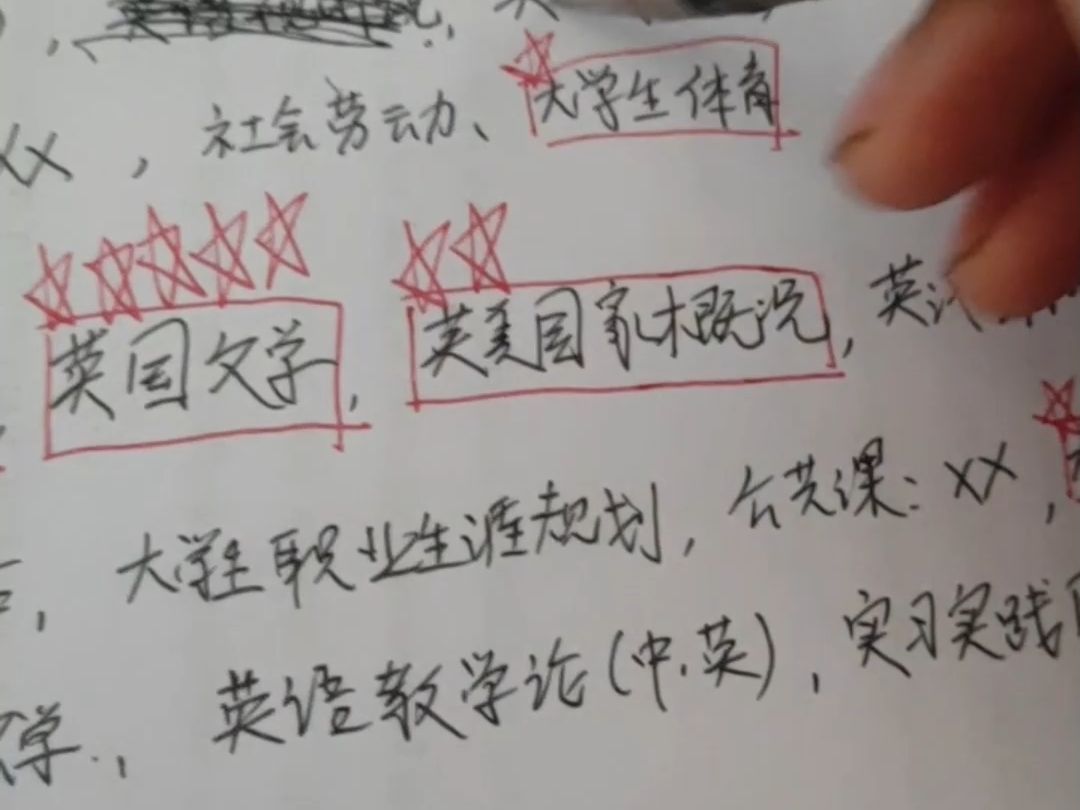 XX，社会劳动、大学生体育
英国文学，英美国家概况，英
大学生职业生涯规划，公共课：XX，
学，英语教学论(中.英)，实习实践